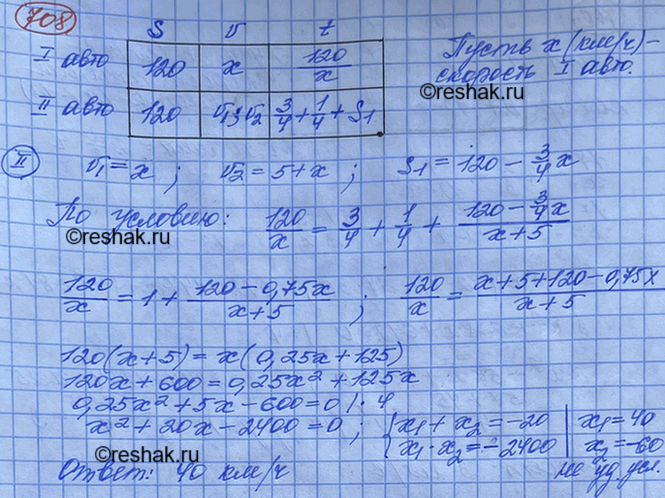 708
S v t
I авто 120 x 120/x
II авто 120 v₁; v₂ 3/4 + 1/4 + S₁
Пусть x (км/ч) –
скорость I авто.
©reshak.ru
II v₁ = x ; v₂ = 5 + x ; S₁ = 120 – 3/4 x
По условию: 120/x = 3/4 + 1/4 + (120 – 3/4 x)/(x + 5)
©reshak.ru
©reshak.ru
120/x = 1 + (120 – 0,75x)/(x + 5) ; 120/x = (x + 5 + 120 – 0,75x)/(x + 5)
©reshak.ru
120(x + 5) = x(0,25x + 125)
120x + 600 = 0,25x² + 125x
0,25x² + 5x – 600 = 0 | · 4
x² + 20x – 2400 = 0 ; { x₁ + x₂ = –20 | x₁ = 40
x₁ · x₂ = –2400 | x₂ = –60
не уд. усл.
Ответ: 40 км/ч
©reshak.ru
©reshak.ru